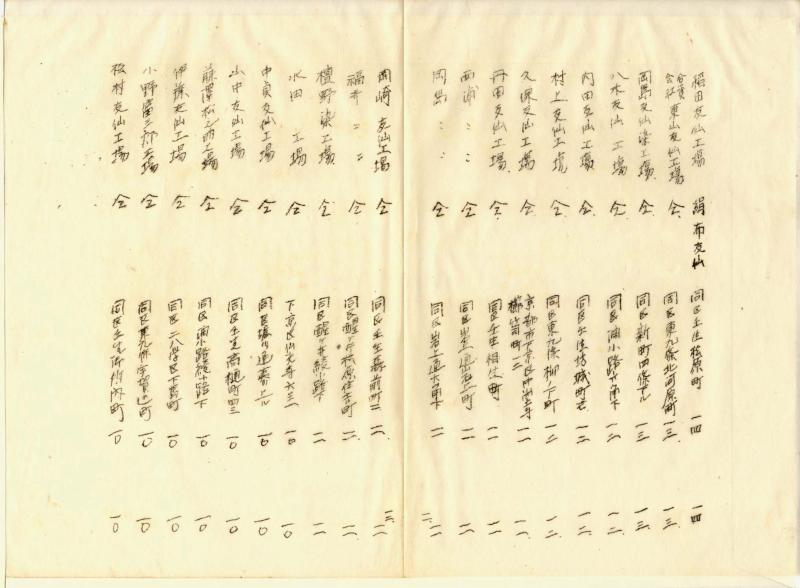 稲田友仙工場 絹布友仙 同区壬生松原町 一四 一四
合資会社東山友仙工場 仝 同区東九條北河原町 一三 一三
岡島友仙染工場 仝 同区新町四條下ル 一三 一三
八木友仙工場 仝 同区油小路 南下 一二 一二
内田友仙工場 仝 同区壬生坊城町 一二 一二
村上友仙工場 仝 同区東九條柳ノ下町 一二 一二
久保友仙工場 仝 京都市下京区中堂寺櫛笥町一二 一一 一一
丹田友仙工場 仝 同区壬生相仕町 一一 一一
西浦〃〃 仝 同区岩上通 町 一一 一一
岡島〃〃 仝 同区岩上通六角下 一一 一一
岡崎友仙工場 仝 同区壬生森前町二 一一 一一
福井〃〃 仝 同区醒ヶ井松原住吉町 一一 一一
植野染工場 仝 同区醒ヶ井綾小路下 一一 一一
水田工場 仝 下京区仏光寺大 一〇 一〇
中貞友仙工場 仝 同区堀川 上ル 一〇 一〇
山中友仙工場 仝 同区壬生高樋町四三 一〇 一〇
藤澤松之助工場 仝 同区油小路姫路下 一〇 一〇
伊藤友仙工場 仝 同区二八学区下 町 一〇 一〇
小野富三郎工場 仝 同区東九條宇賀辺町 一〇 一〇
松村友仙工場 仝 同区壬生 町 一〇 一〇